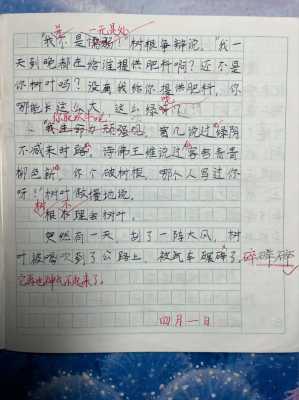 一无是处
"我你是 树根争辩说,"我一
天到晚都在给谁提供肥料啊?还不是
你树叶吗?没有我给你提供肥料,你
哪能长这么大,这么绿呢?"
你能 吧
曾几说过"绿阴
不减来时路",诗佛王维说过"客舍青青
柳色新",你个破树根,哪个人写过你
呀!"树叶傲慢地说。
树 不
根 理会树叶。
突然有一天,刮了一阵大风,树
叶被 吹到了公路上,被汽车碾碎了。碎碎碎
它再也神气不起来了。
四月一日